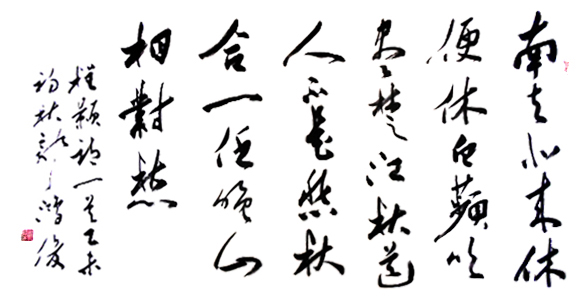 南去北来休
便休白蘋吹
尽楚江秋道
人不是悲秋
客一任晚山
相對愁
程颢詩一首乙未
初秋